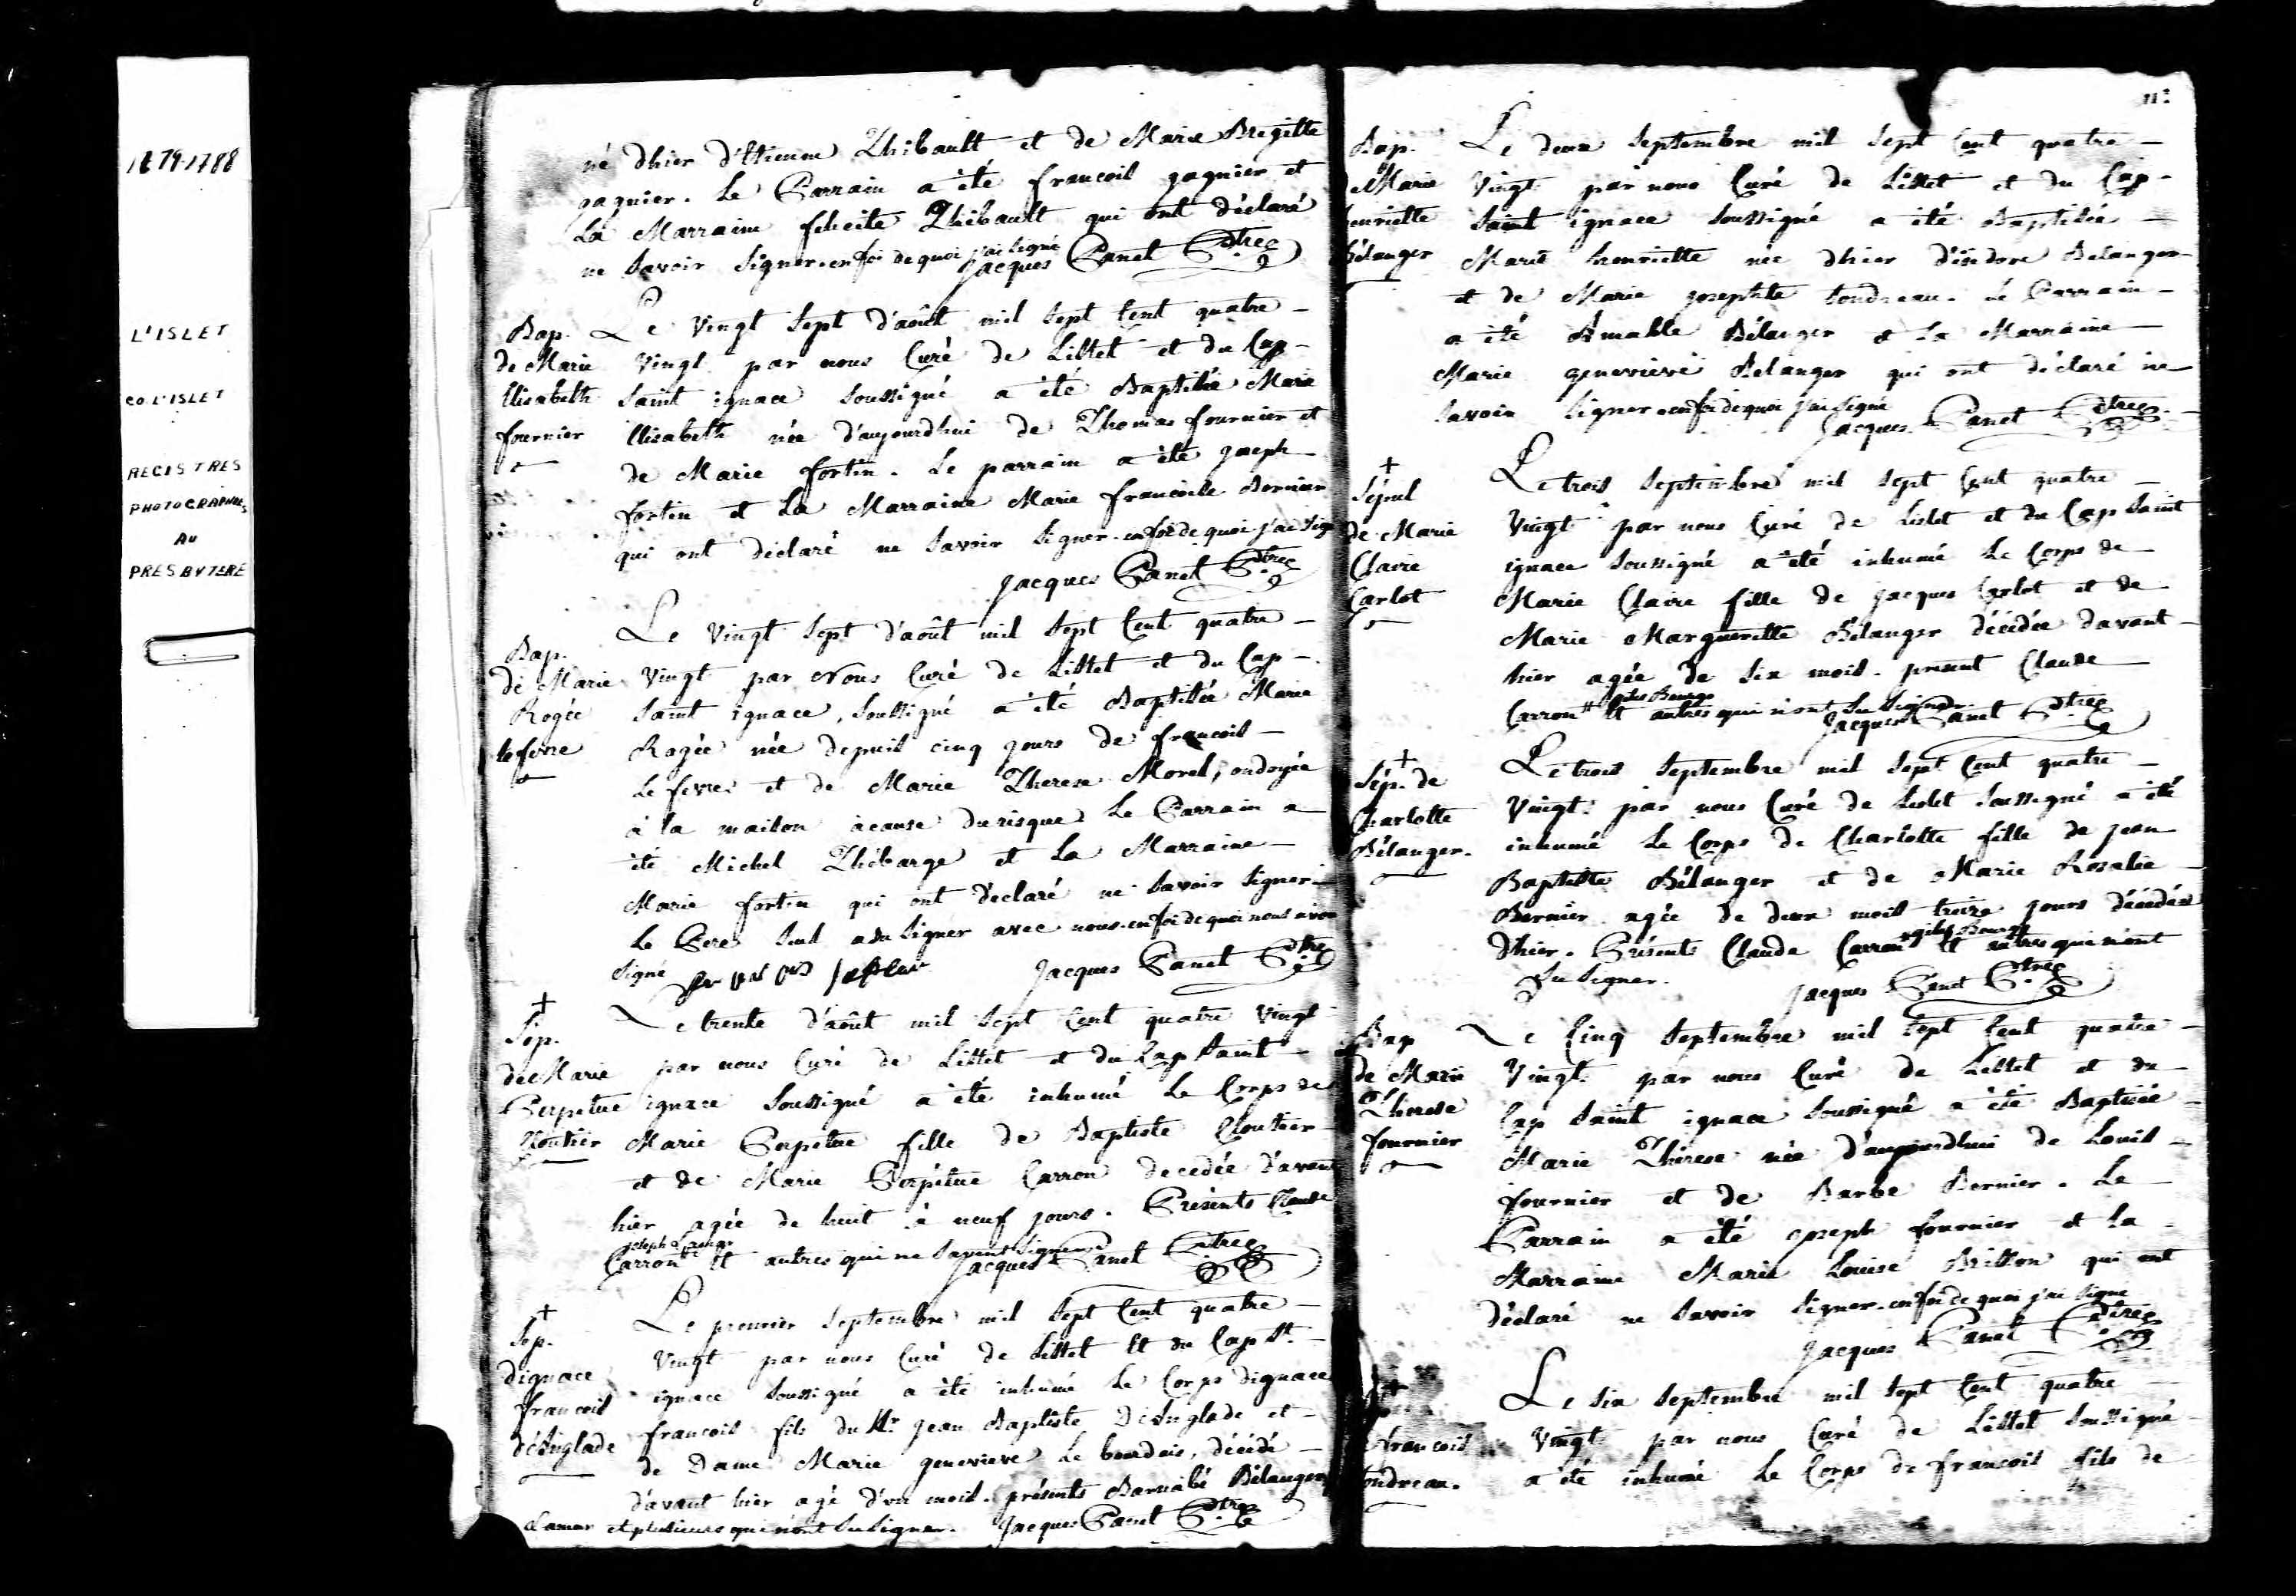 1679-1788
L'ISLET
CO. L'ISLET
REGISTRES
PHOTOGRAPHIES
AU
PRESBYTERE
né dhier d'Etienne Thibault et de Marie Bregitte
gagnier. Le Parrain a été francois gagnier et
La Marraine felicite Thibault qui ont déclaré
ne Savoir Signer. en foi de quoi j'ai Signé
Jacques Panet Ptre
Bap.
de Marie
Elisabeth
fournier
Le Vingt Sept d'août mil Sept Cent quatre
Vingt par nous Curé de Lislet et du Cap
Saint ignace Soussigné a été Baptisée Marie
Elisabeth née d'aujourdhui de Thomas fournier et
de Marie fortin. Le parrain a été joseph
fortin et La Marraine Marie francoise Bernier
qui ont déclaré ne Savoir Signer. en foi de quoi j'ai Signé
Jacques Panet Ptre
Bap.
de Marie
Rogée
lefevre
Le Vingt Sept d'août mil Sept Cent quatre
Vingt par Nous Curé de Lislet et du Cap
Saint ignace, Soussigné a été Baptisée Marie
Rogée née depuis cinq jours de francois
Lefevre et de Marie Therese Morel, ondoyée
à la maison acause du risque Le Parrain a
été Michel Thébarge et La Marraine
Marie fortin qui ont déclaré ne Savoir Signer
Le Pere Seul a du Signer avec nous. en foi de quoi nous avons
Signé
Jacques Panet Ptre
+
Sep.
de Marie
Perpetue
Cloutier
Le trente d'août mil Sept Cent quatre Vingt
par nous Curé de Lislet et du Cap Saint
ignace Soussigné a été inhumé Le Corps de
Marie Perpetue fille de Baptiste Cloutier
et de Marie Perpétue Carron decedée d'avant
hier agée de huit à neuf jours. Présents Claude
Carron joseph et autres qui ne Savent Signer
Jacques Panet Ptre
+
Sep.
dignace
francois
déAnglade
Le premier Septembre mil Sept Cent quatre
Vingt par nous Curé de Lislet Et du Cap St.
ignace Soussigné a été inhumé Le Corps dignace
francois fils du Sr. jean Baptiste DéAnglade et
de Dame Marie genevieve Le bourdais, décédé
d'avant hier agé d'un mois. présents Barnabé Bélanger
et plusieurs qui n'ont Su Signer. Jacques Panet Ptre
Bap.
de Marie
henriette
Bélanger
Le deux Septembre mil Sept Cent quatre
Vingt par nous Curé de Lislet et du Cap
Saint ignace Soussigné a été Baptisée
Marie henriette née dhier d'isidore Belanger
et de Marie josephte tondreau. Le Parrain
a été Amable Bélanger et La Marraine
Marie genevieve Belanger qui ont déclaré ne
Savoir Signer. en foi de quoi j'ai Signé
Jacques Panet Ptre
+
Sépul
de Marie
Claire
Carlot
Le trois Septembre mil Sept Cent quatre
Vingt par nous Curé de Lislet et du Cap Saint
ignace Soussigné a été inhumé Le Corps de
Marie Claire fille de jacques Carlot et de
Marie Marguerite Bélanger décédée d'avant
hier agée de Six mois. present Claude
Carron gilles Bourge Et autres qui n'ont Su Signer
Jacques Panet Ptre
+
Sép. de
Charlotte
Bélanger.
Le trois Septembre mil Sept Cent quatre
Vingt par nous Curé de Lislet Soussigné a été
inhumé Le Corps de Charlotte fille de jean
Baptiste Bélanger et de Marie Rosalie
Bernier agée de deux mois treize jours décédée
d'hier. Présents Claude Carron gilles Bourge Et autres qui n'ont
Su Signer.
Jacques Panet Ptre
Bap
de Marie
Therese
fournier
Le Cinq Septembre mil Sept Cent quatre
Vingt par nous Curé de Lislet et du
Cap Saint ignace Soussigné a été Baptisée
Marie Thérese née d'aujourdhui de Louis
fournier et de Barbe Bernier. Le
Parrain a été joseph fournier et la
Marraine Marie Louise Brisson qui ont
déclaré ne Savoir Signer. en foi de quoi j'ai Signé
Jacques Panet Ptre
francois
tondreau.
Le Six Septembre mil Sept Cent quatre
Vingt par nous Curé de Lislet Soussigné
a été inhumé Le Corps de francois fils de